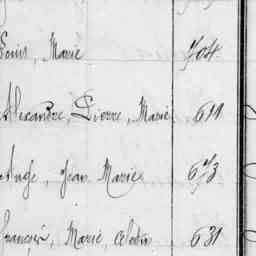 Louis, Marie 704.
Alexandre, Pierre, Marie 614
Ange, Jean Marie 673
François, Marie, 631